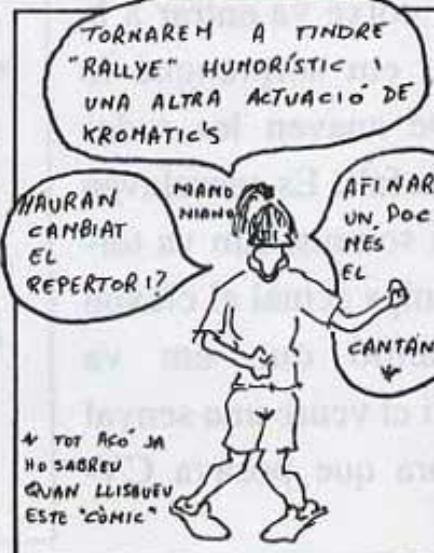 TORNAREM A TINDRE
"RALLYE" HUMORÍSTIC I
UNA ALTRA ACTUACIÓ DE
KROMATIC'S
HAURAN
CANBIAT
EL
REPERTORI?
NIANO
NIANO
AFINAR
UN POC
MÉS
EL
CANTAN
* TOT AÇÓ JA
HO SABREU
QUAN LLISGUEU
ESTE "CÒMIC"